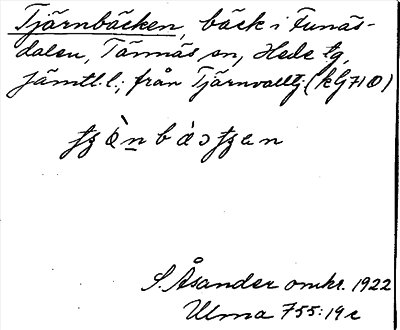 Tjärnbäcken, bäck i Funäs-
dalen, Tännäs sn, Hede tg,
Jämtl. l.; från Tjärnvalltj. (kG 71 Ö)
S. Åsander omkr. 1922
Ulma 755:19 c